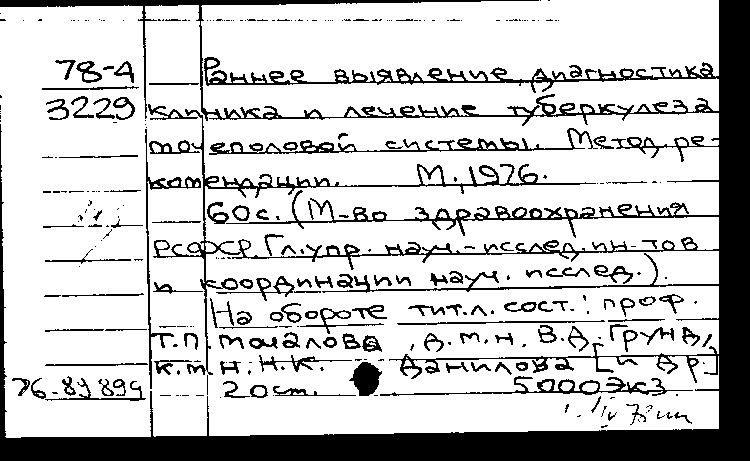 78-4 Раннее выявление, диагностика
3229 клиника и лечение туберкулеза
мочеполовой системы. Метод. ре-
комендации. М., 1976.
60с. (М-во здравоохранения
РСФСР. Гл. упр. науч.-исслед. ин-тов
и координации науч. исслед.).
На обороте тит. л. сост.: проф.
Т.П. Мочалова, д.м.н. В.Д. Грунд,
к.м.н. Н.К. Данилова [и др.]
76-89899 20 ст. 5000экз